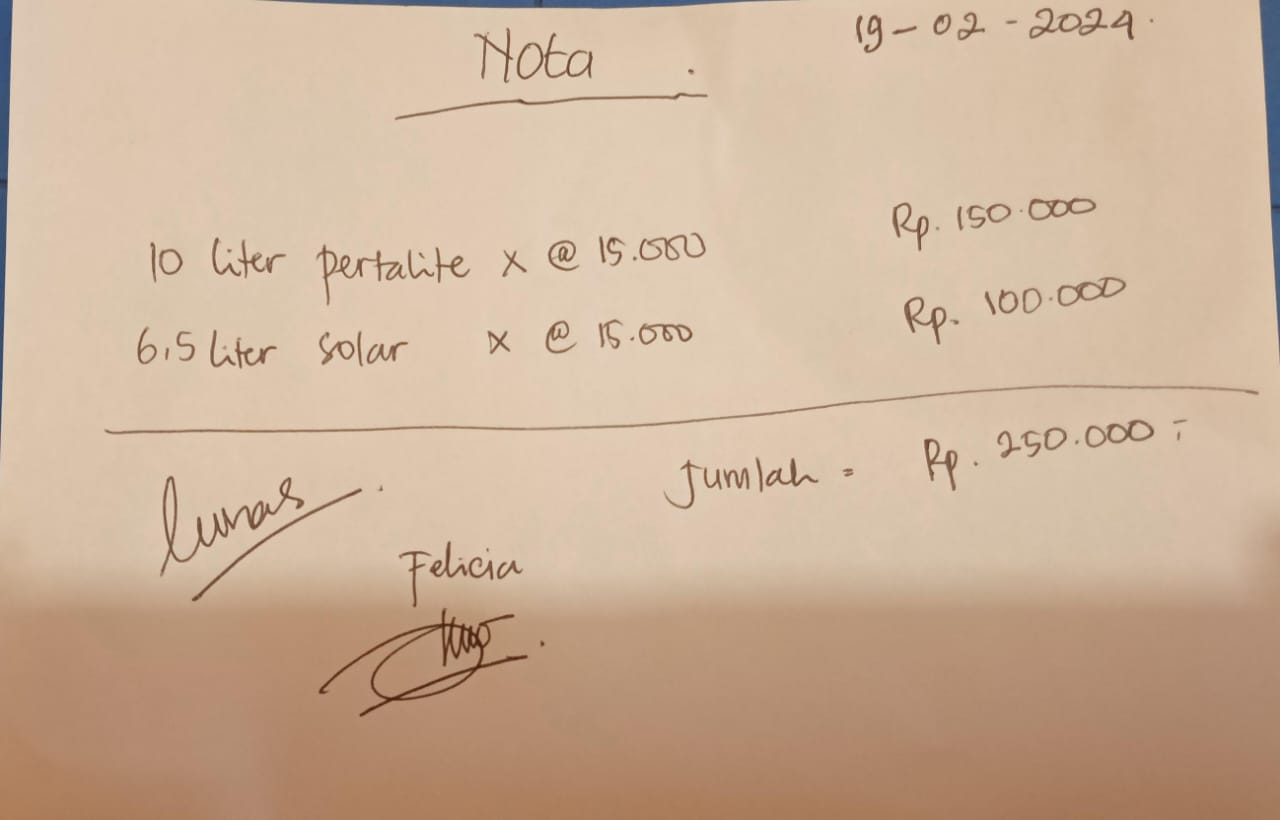 Nota
19-02-2024.
10 liter pertalite x @ 15.000 Rp. 150.000
6,5 liter solar x @ 15.000 Rp. 100.000
Jumlah = Rp. 250.000,-
lunas
Felicia